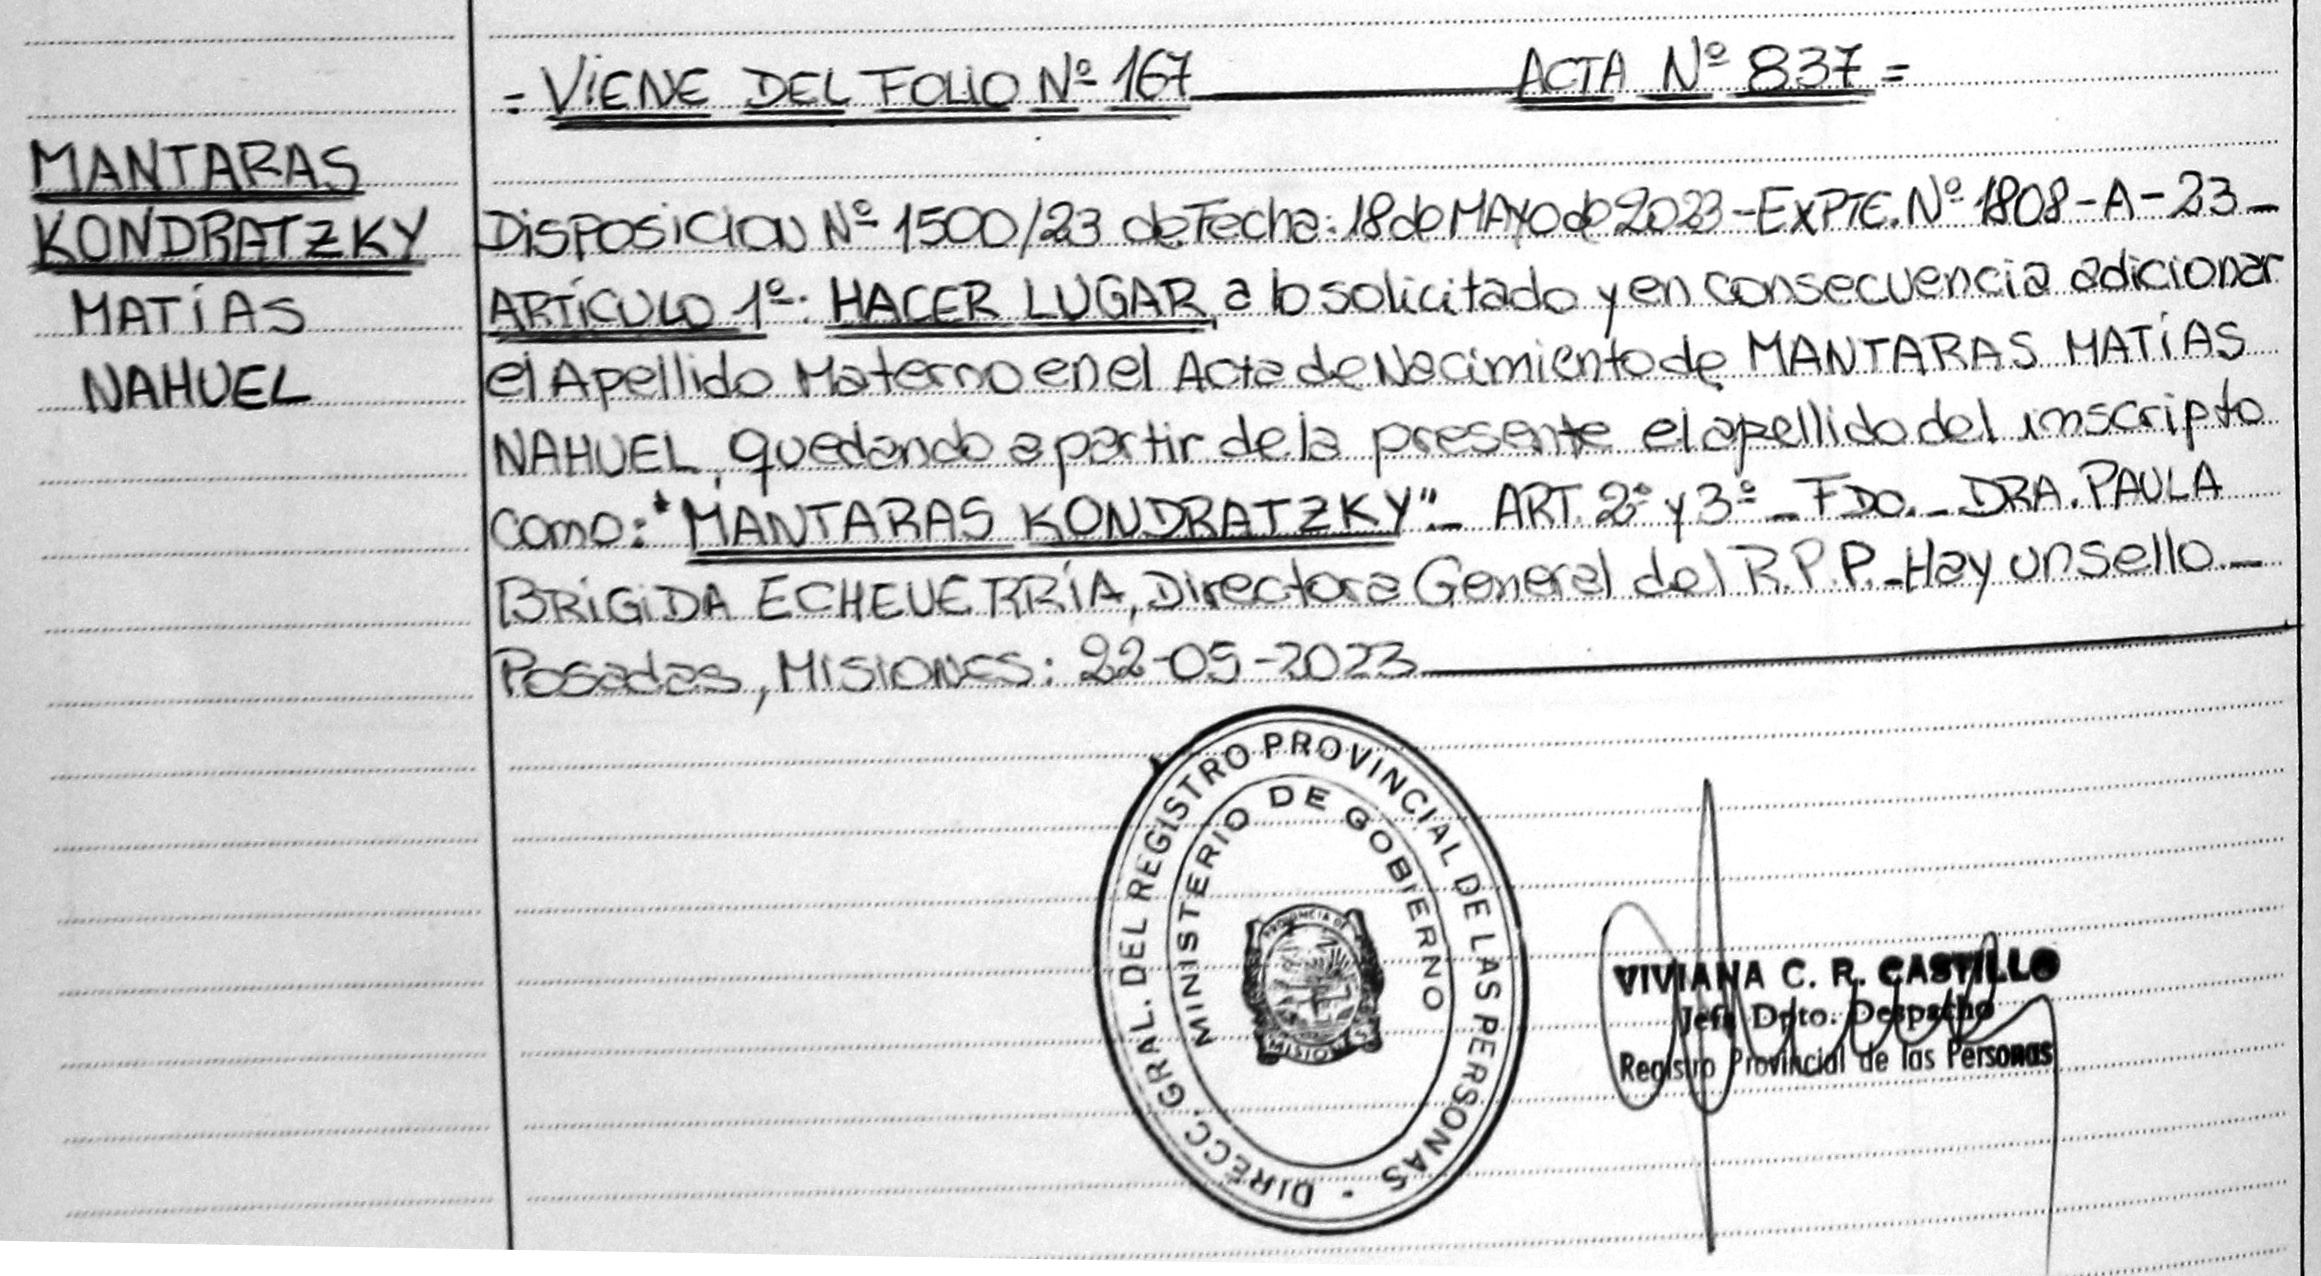 = VIENE DEL FOLIO Nº 167 ACTA Nº 837 =
MANTARAS
KONDRATZKY
MATÍAS
NAHUEL
DISPOSICION Nº 1500/23 de Fecha: 18 de MAYO de 2023 - EXPTE. Nº 1808-A-23 _
ARTÍCULO 1º: HACER LUGAR, a lo solicitado y en consecuencia adicionar
el Apellido Materno en el Acta de Nacimiento de MANTARAS MATÍAS
NAHUEL, quedando a partir de la presente el apellido del inscripto
como: "MANTARAS KONDRATZKY" _ ART. 2º y 3º _ FDO. _ DRA. PAULA
BRÍGIDA ECHEVERRÍA, Directora General del R.P.P. _ Hay un sello _
Posadas, MISIONES: 22-05-2023
DIRECC. GRAL. DEL REGISTRO PROVINCIAL DE LAS PERSONAS
MINISTERIO DE GOBIERNO
PROVINCIA DE
MISIONES
VIVIANA C. R. CASTILLO
Jefe Dpto. Despacho
Registro Provincial de las Personas